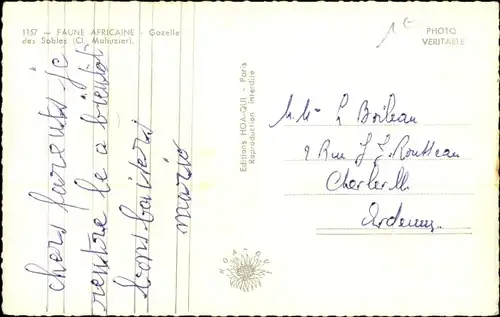 1157 — FAUNE AFRICAINE - Gazelle
des Sables (Cl. Mahuzier).
chers parents je
rentre le a bientôt
bons baisers
mario
Editions HOA-QUI - Paris
Reproduction interdite
HOA-QUI
1€
PHOTO
VERITABLE
L Boileau
9 Rue J J. Rousseau
Charleville
Ardennes